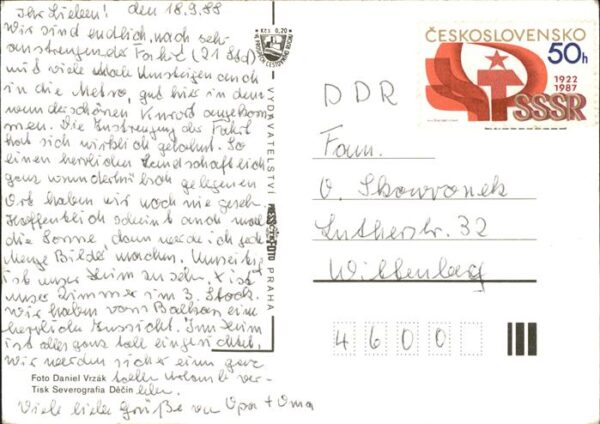 Ihr Lieben! den 18.9.88
Wir sind endlich, nach sehr
anstrengender Fahrt (21 Std)
und viele Male Umsteigen auch
in die Metro, gut hier in dem
wunderschönen Kurort angekom
men. Die Anstrengung der Fahrt
hat sich wirklich gelohnt. So
einen herrlichen landschaftlich
ganz wunderhübsch gelegenen
Ort haben wir noch nie geseh.
Hoffentlich scheint auch mal
die Sonne, dann werde ich jede
Menge Bilder machen. Umseitig
ist unser Heim zu sehn. X ist
unser Zimmer im 3. Stock.
Wir haben vom Balkon eine
herrliche Aussicht. Im Heim
ist alles ganz toll eingerichtet.
Wir werden sicher einen ganz
tollen Urlaub ver-
leben.
Viele liebe Grüße von Opa + Oma
Foto Daniel Vrzák
Tisk Severografia Děčín
Kčs 0,20
VYDAVATELSTVÍ
PRAHA
ČESKOSLOVENSKO
50h
1922
1987
SSSR
DDR
Fam.
O. Skowronek
Lutherstr. 32
Wittenberg
4600